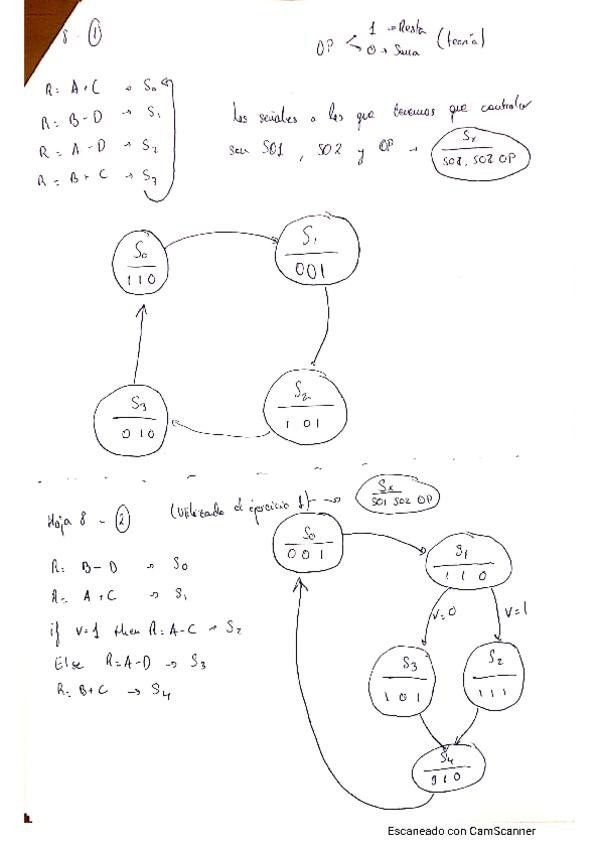 8 - ①
OP < 1 → Resta
0 → Suma (teoría)
R = A + C → S0
R = B - D → S1
R = A - D → S2
R = B + C → S3
Las señales a las que tenemos que controlar
son SO1, SO2 y OP → Sx
SO1, SO2 OP
S0
110
S1
001
S3
010
S2
101
Hoja 8 - ②
(Utilizado el ejercicio 1) → Sx
SO1 SO2 OP
R = B - D → S0
R = A + C → S1
if V=1 then R = A-C → S2
Else R = A-D → S3
R = B + C → S4
S0
001
S1
110
V=0
V=1
S3
101
S2
111
S4
010
Escaneado con CamScanner